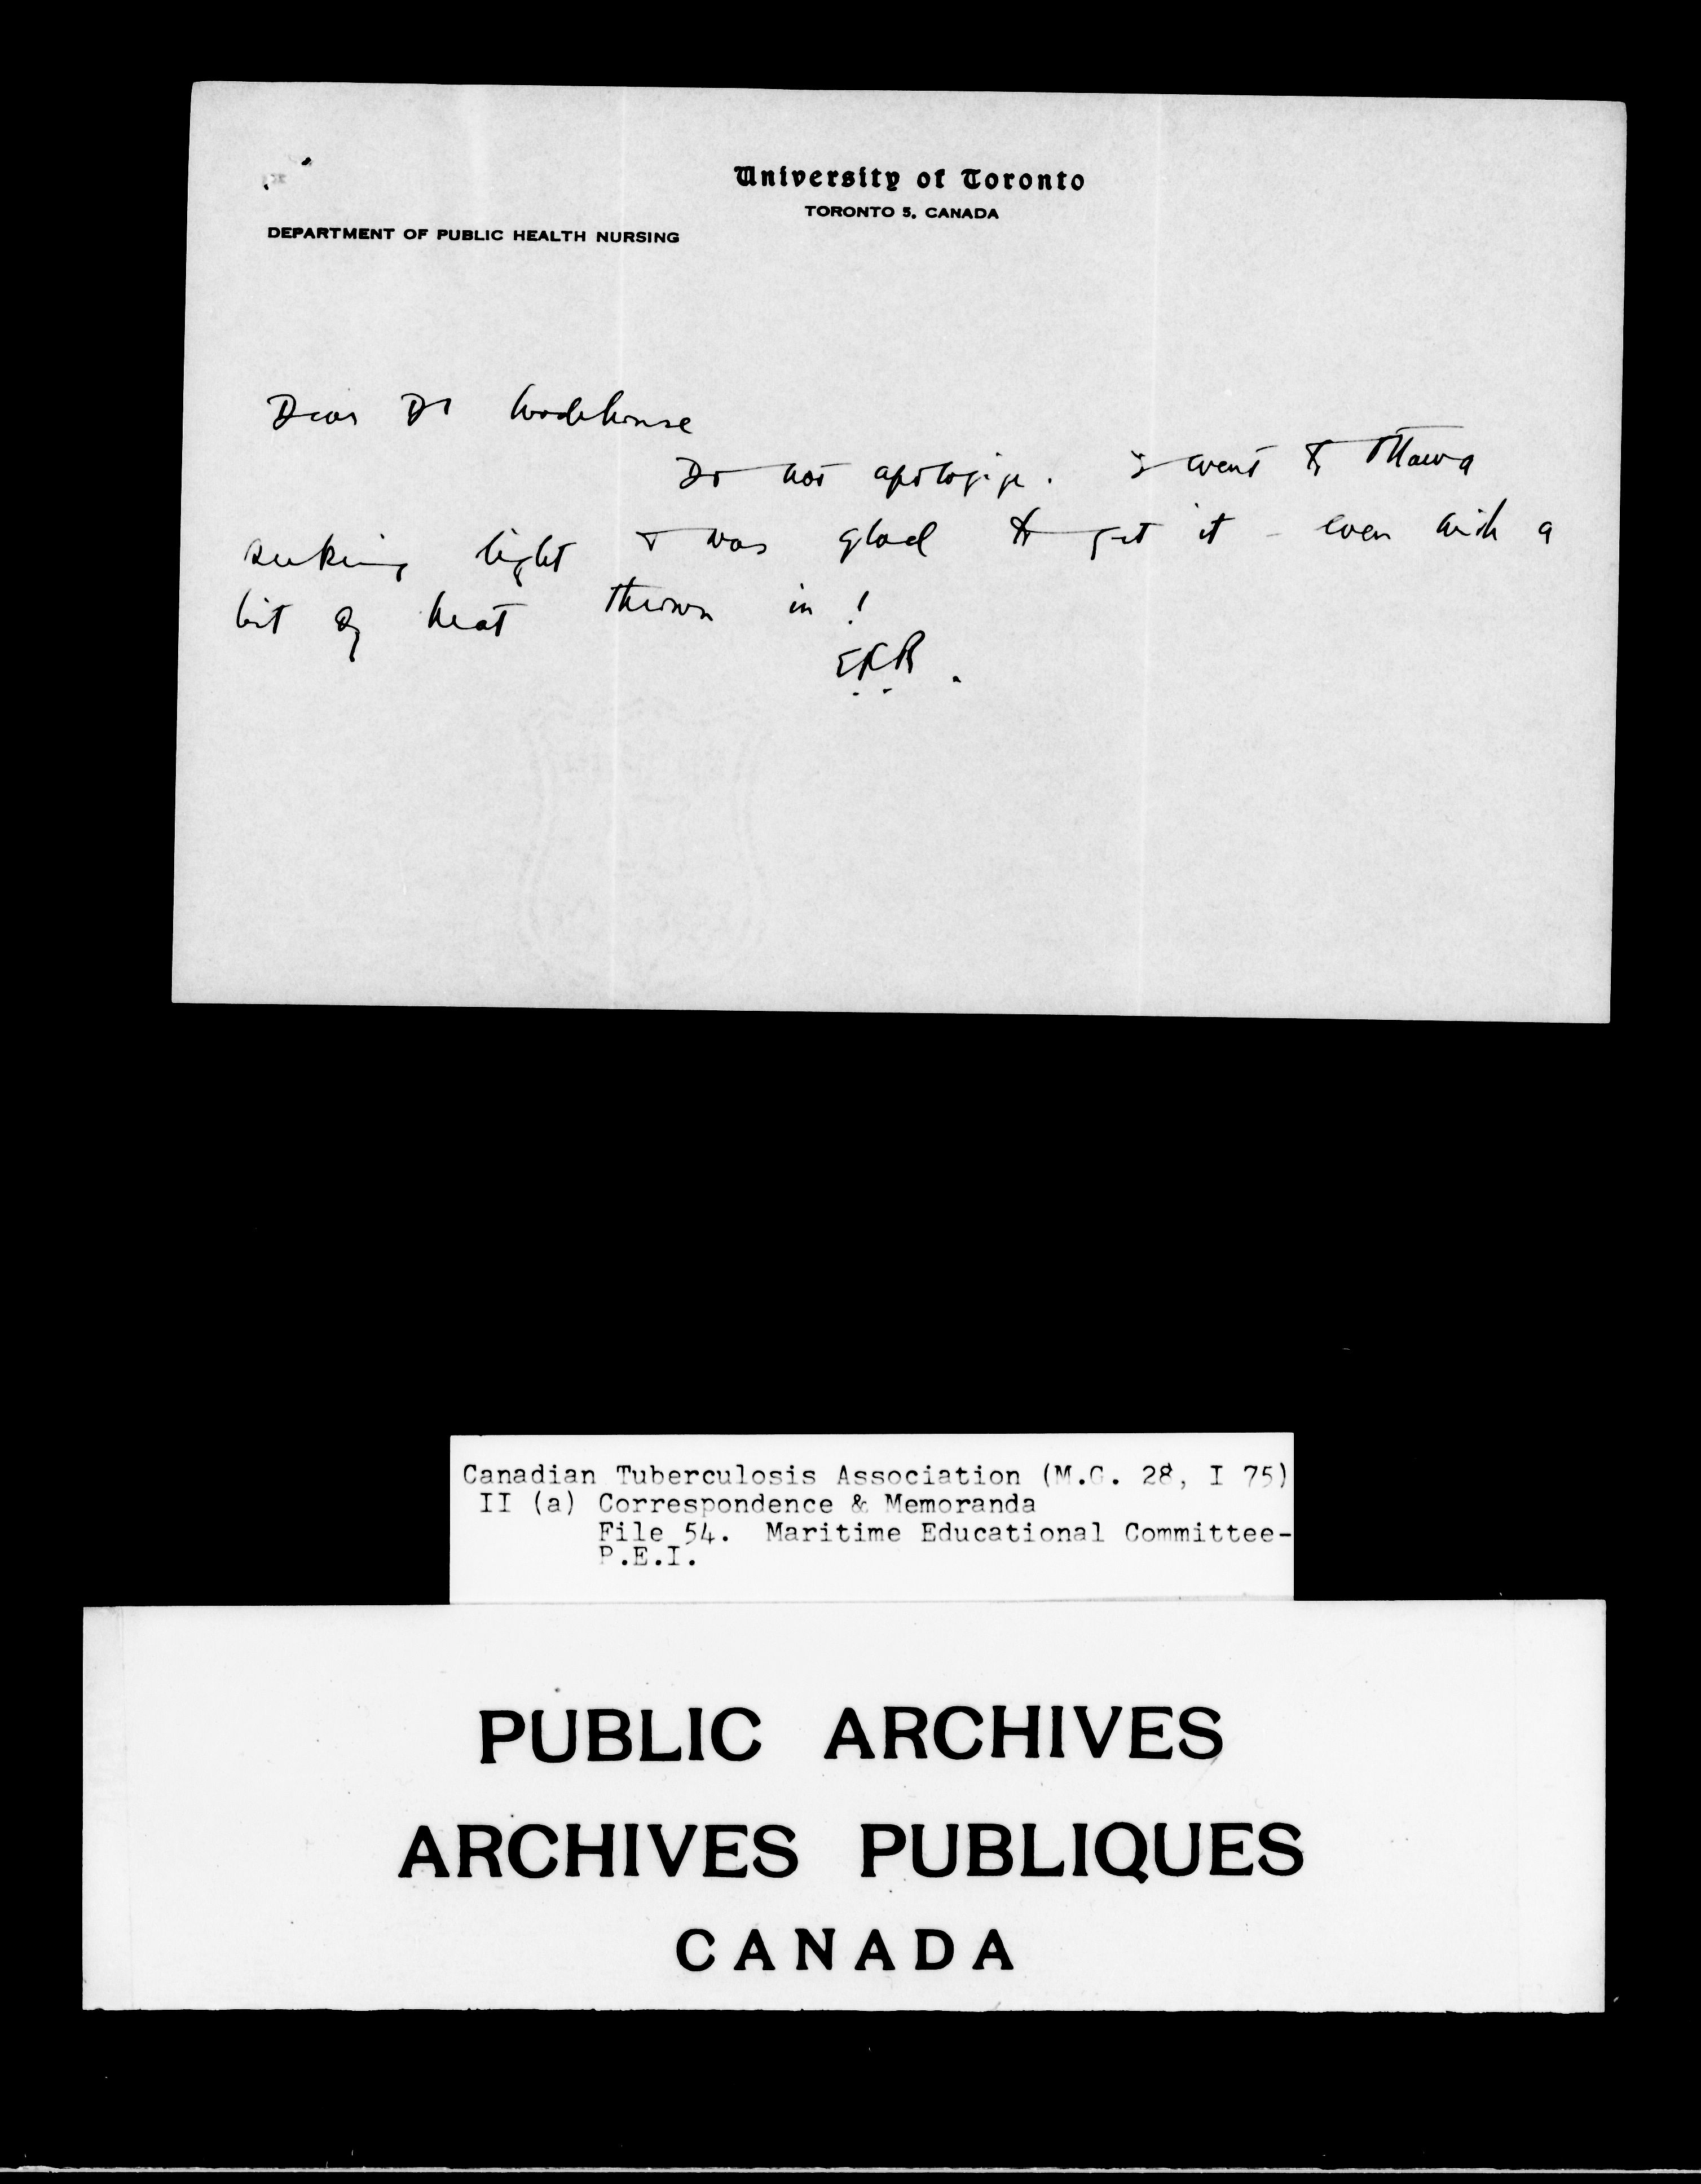 University of Toronto
TORONTO 5, CANADA
DEPARTMENT OF PUBLIC HEALTH NURSING
Dear Dr Wodehouse
Do not apologize. I went to Ottawa
seeking light & was glad to get it - even with a
bit of heat thrown in!
EKR.
Canadian Tuberculosis Association (M.G. 28, I 75)
II (a) Correspondence & Memoranda
File 54. Maritime Educational Committee-
P.E.I.
PUBLIC ARCHIVES
ARCHIVES PUBLIQUES
CANADA